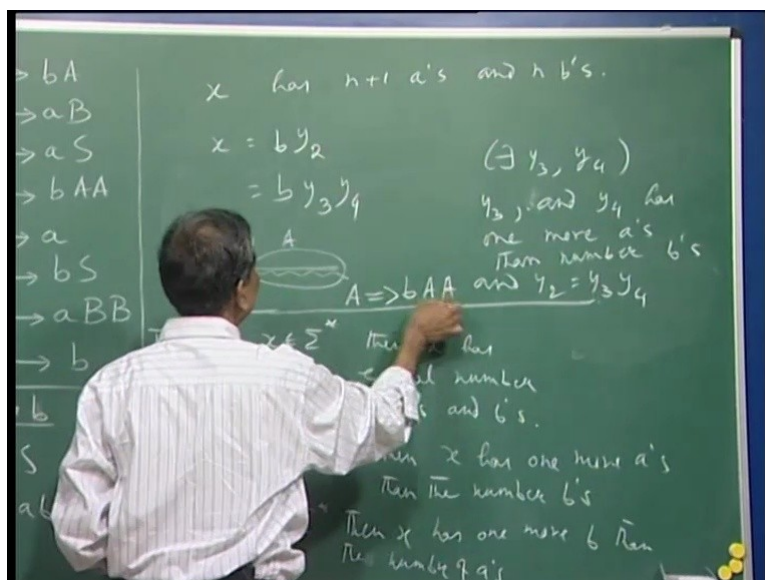 → bA
→ aB
→ aS
→ bAA
→ a
→ bS
→ aBB
→ b
b
S
ab
x has n+1 a's and n b's.
x = by₂
= by₃y₄
(∃ y₃, y₄)
y₃, and y₄ has
one more a's
than number b's
and y₂ = y₃y₄
A
A => bAA
x ∈ Σ* then x has
number
and b's.
then x has one more a's
than the number b's
Then x has one more b than
the number of a's